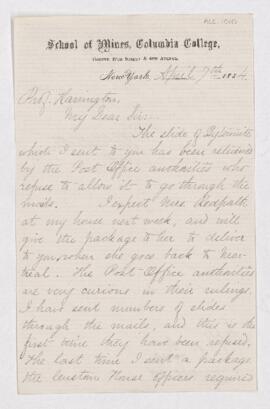 School of Mines, Columbia College,
Corner 49th Street & 4th Avenue,
New York, April 7th 1884
Prof. Harrington,
My Dear Sir:
The slide of
which I sent to you has been returned
by the Post Office authorities who
refuse to allow it to go through the
mails. I expect Mrs Redpath
at my house next week, and will
give the package to her to deliver
to you, when she goes back to Mon-
treal. The Post Office authorities
are very curious in their rulings.
I have sent numbers of slides
through the mails, and this is the
first time they have been refused.
The last time I sent a package
the Custom House Officers required